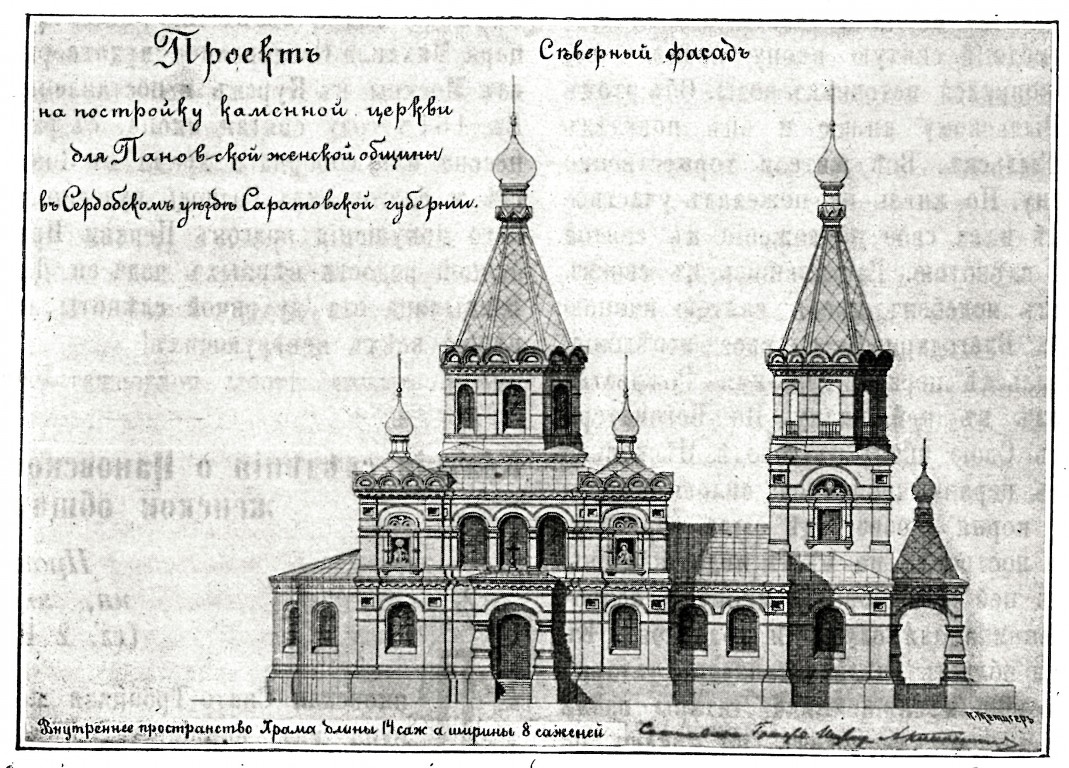 Проектъ
на постройку каменной церкви
для Пановской женской общины
въ Сердобскомъ уѣздѣ Саратовской губерніи.
Сѣверный фасадъ
Внутреннее пространство Храма длины 14 саж а ширины 8 саженей